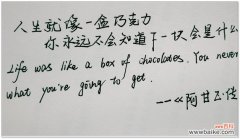 人生就像一盒巧克力
你永远不会知道下一块会是什么
Life was like a box of chocolates. You never
what you're going to get.
——《阿甘正传
www.百科.com